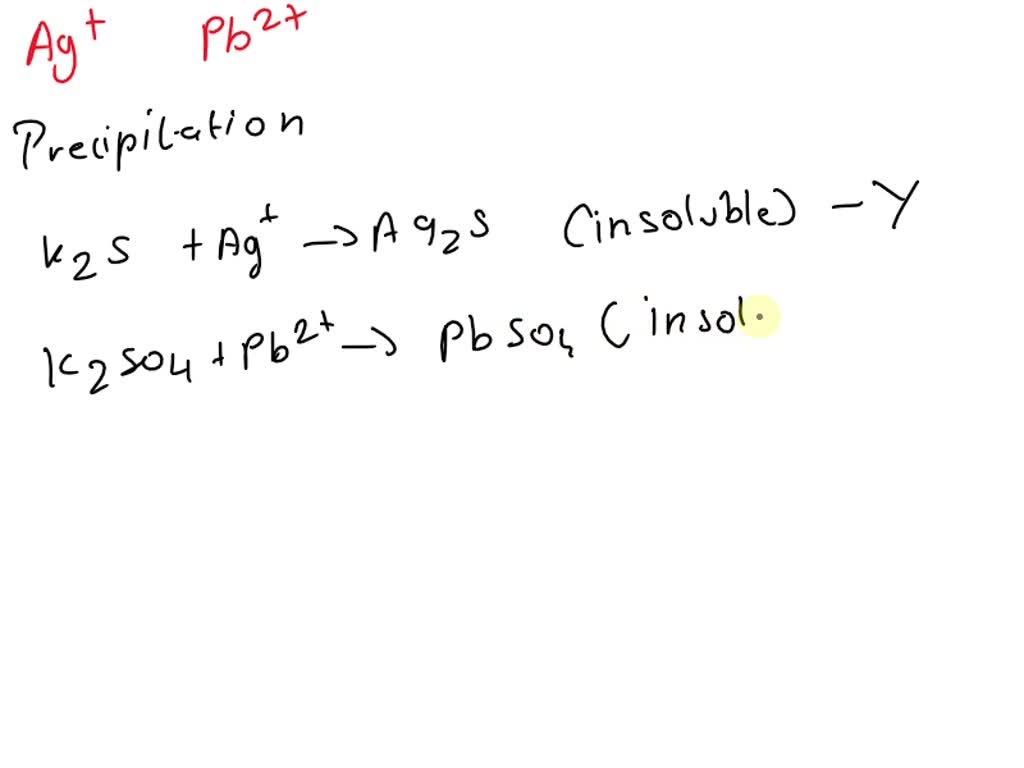 Ag⁺ Pb²⁺
Precipitation
K₂S + Ag⁺ → Ag₂S (insoluble) – Y
K₂SO₄ + Pb²⁺ → PbSO₄ (insol